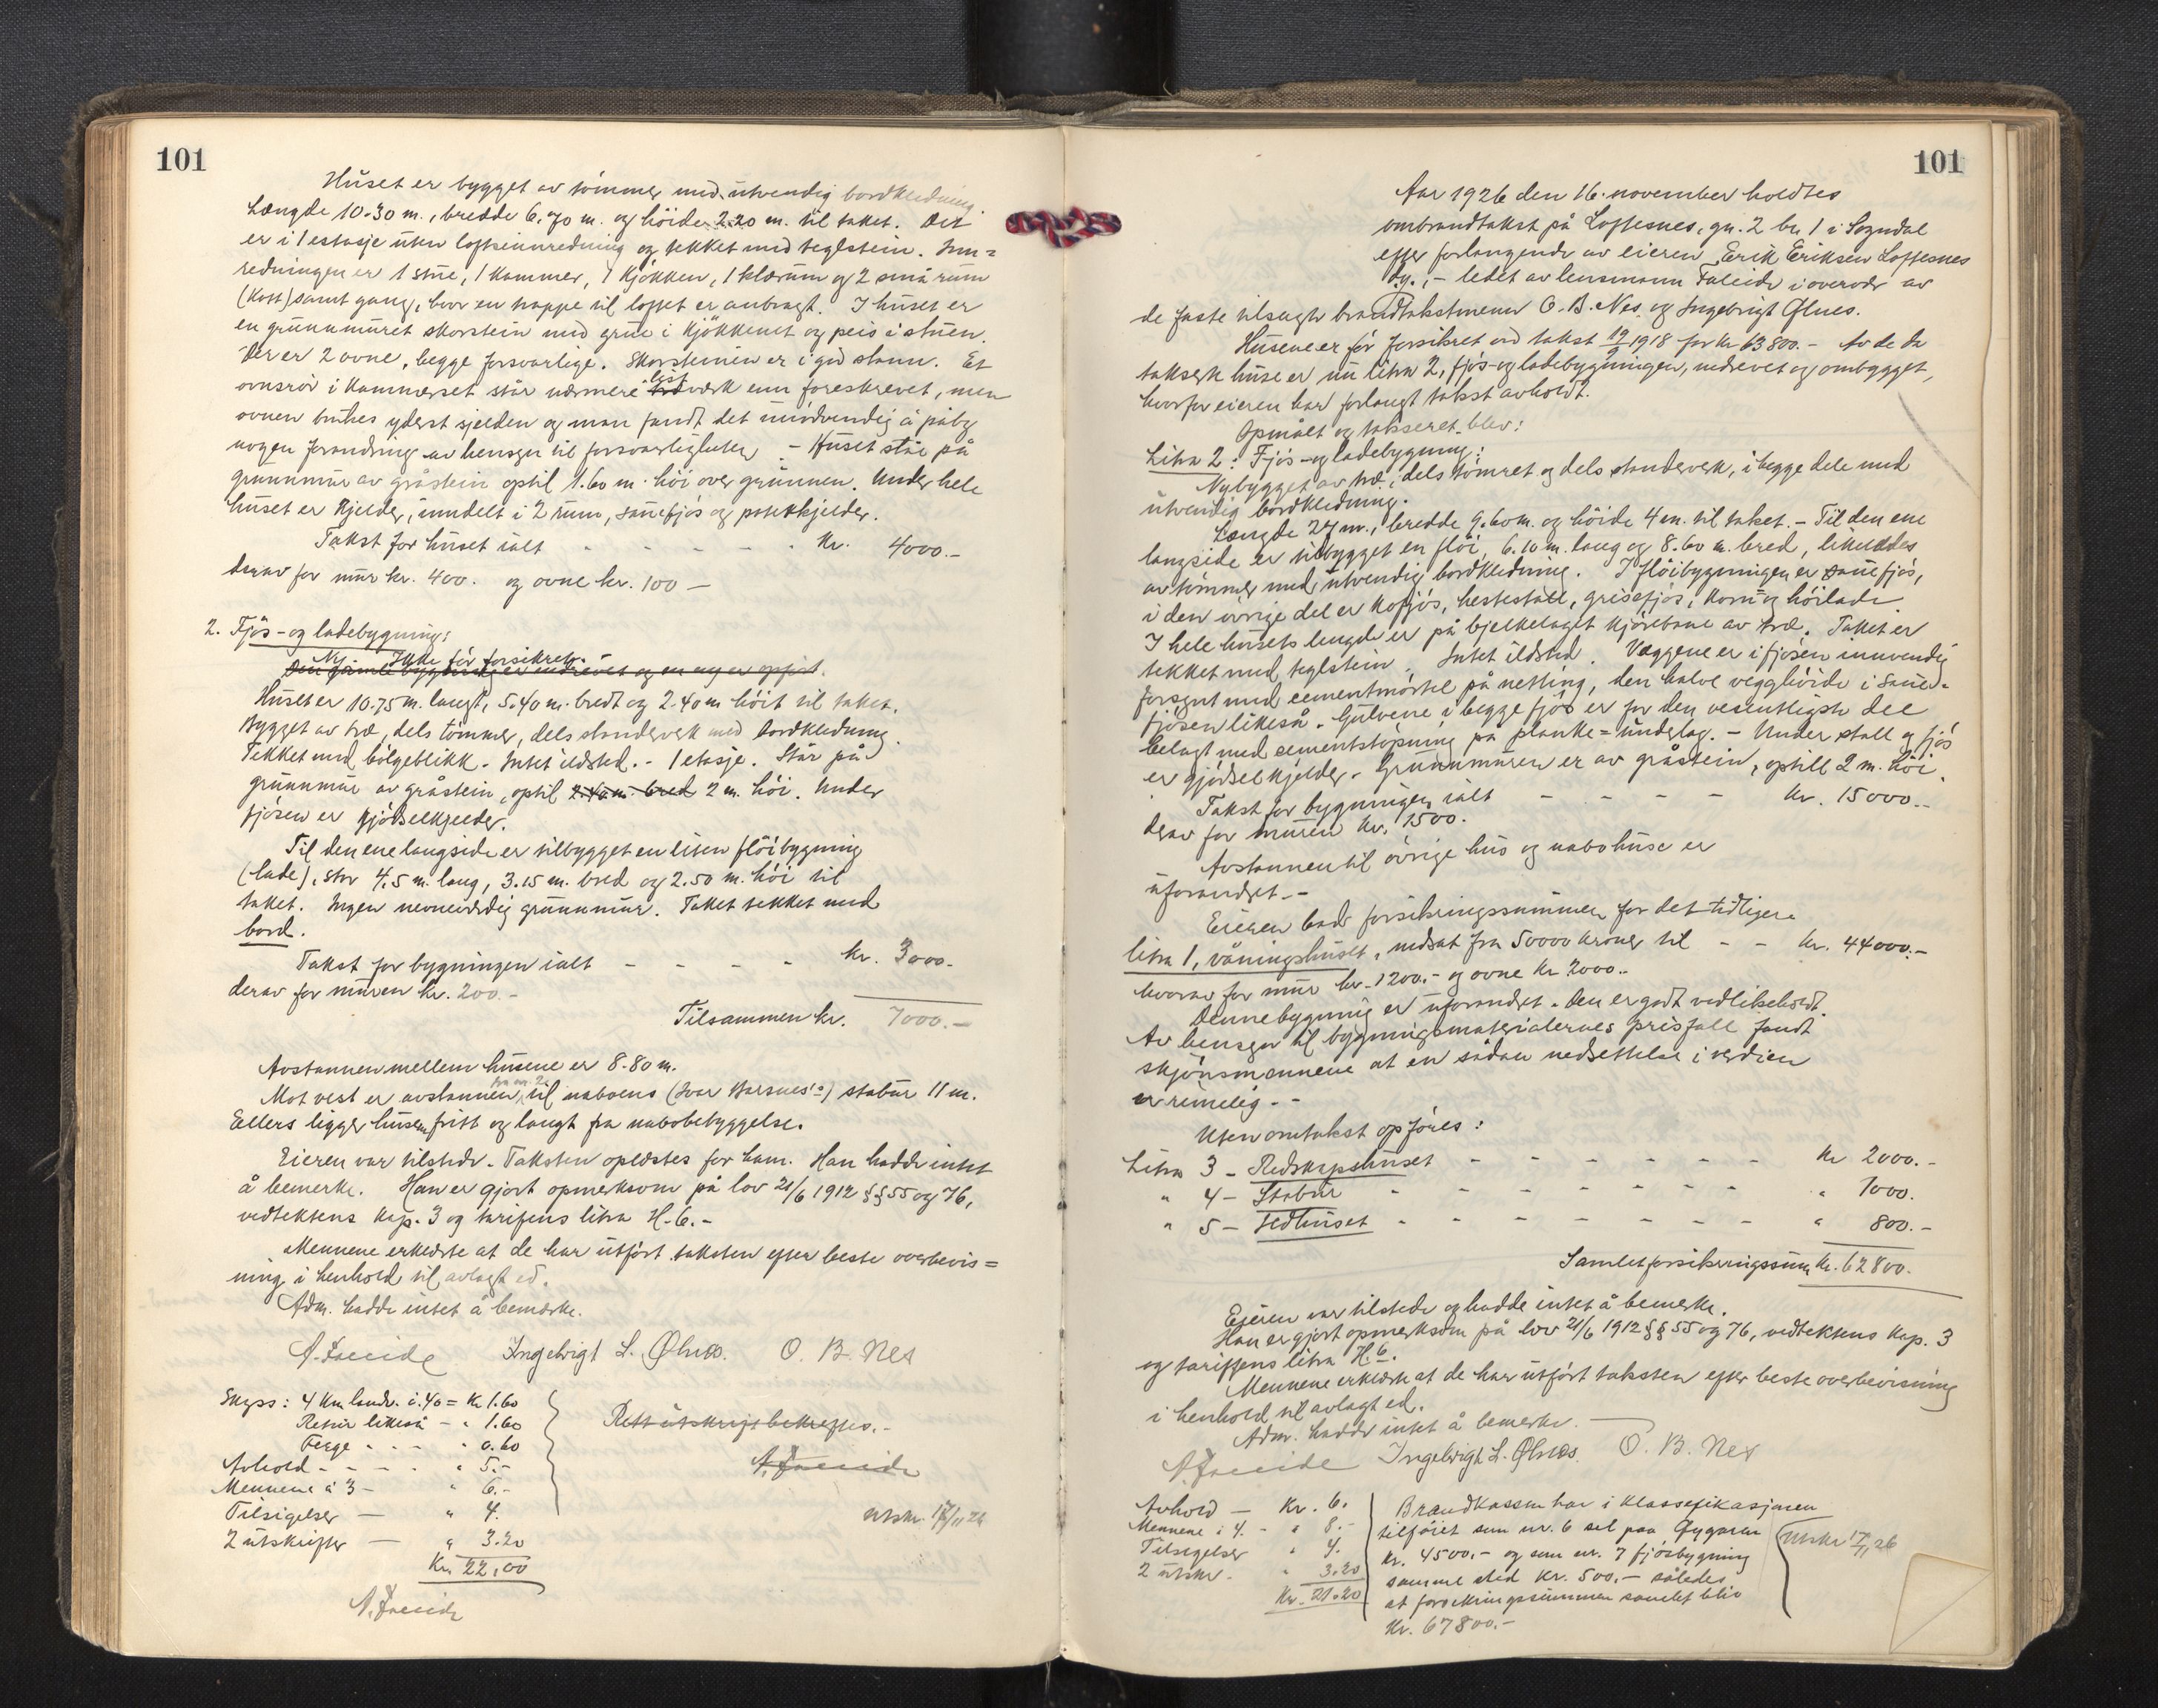 101
Huset er bygget av tømmer med utvendig bordkledning.
Længde 10.30 m., bredde 6.70 m. og höide 2.20 m. til taket. Det
er i 1 etasje uten loftsinnredning og tekket med teglstein. Inn=
redningen er 1 stue, 1 kammer, 1 kjökken, 1 klærum og 2 små rum
(kott) samt gang, hvor en trappe til loftet er anbragt. I huset er
en grunnmuret skorstein med grue i kjökkenet og peis i stuen.
Der er 2 ovne, begge forsvarlige. Skorsteinen er i god stann. Et
ovnsrör i kammerset står nærmere træverk enn foreskrevet, men
ovnen brukes yderst sjelden og man fandt det unödvendig å påby
nogen forandring av hensyn til forsvarligheten. - Huset står på
grunnmur av gråstein optil 1.60 m. höi over grunnen. Under hele
huset er kjelder, inndelt i 2 rum, sauefjös og potetkjelder.
Takst for huset ialt - - - - - Kr. 4000.-
derav for mur kr. 400. og ovne kr. 100 -
2. Fjös- og ladebygning:
Ny. Ikke för forsikret.
Den gamle bygning er nedrevet og en ny er opfört.
Huset er 10.75 m. langt, 5.40 m. bredt og 2.40 m höit til taket.
Bygget av træ, dels tömmer, dels stenderverk med bordkledning.
Tekket med bölgeblikk. Intet ildsted. - 1 etasje. Står på
grunnmur av gråstein, optil 2.40 m. bred 2 m. höi. Under
fjösen er gjödselkjelder.
Til den ene langside er tilbygget en liten flöibygning
(lade), stor 4.5 m. lang, 3.15 m. bred og 2.50 m. höi til
taket. Ingen nevneverdig grunnmur. Taket tekket med
bord.
Takst for bygningen ialt - - - - kr. 3000.-
derav for muren kr. 200.-
Tilsammen kr. 7000.-
Avstannen mellem husene er 8.80 m.
Mot vest er avstannen fra nr. 2 til naboens (Ivar Barsnes's) stabur 11 m.
Ellers ligger husene fritt og langt fra nabobebyggelse.
Eieren var tilstede. Taksten oplæstes for ham. Han hadde intet
å bemerke. Han er gjort opmerksom på lov 21/6 1912 §§ 55 og 76,
vedtektens kap. 3 og tarifens litra H-6.-
Mennene erklærte at de har utfört taksten efter beste overbevis=
ning i henhold til avlagt ed.
Adm. hadde intet å bemerke.
A. Faleide Ingebrigt L. Ølnes. O. B. Nes
Skyss: 4 km landv. à 40 = Kr 1.60
Retur likeså - " 1.60
Ferge - - - " 0.60
Avhold - - - - " 5.-
Mennene à 3 - " 6.-
Tilsigelser - " 4.
2 utskrifter - " 3.20
Kr. 22,00
A. Faleide
Rett utskrift bekreftes.-
A. Faleide
Utskr. 17/11 26
101
Aar 1926 den 16. november holdtes
ombrandtakst på Loftesnes, gn. 2 bn. 1 i Sogndal
efter forlangende av eieren Erik Eriksen Loftesnes
d.y., - ledet av lensmann Faleide i overvær av
de faste tilsagte brandtakstmenn O. B. Nes og Ingebrigt Ølnes.
Husene er för forsikret ved takst 19/9 1918 for kr. 63800.- Av de da
takserte huse er nu litra 2, fjös- og ladebygningen, nedrevet og ombygget,
hvorfor eieren har forlangt takst avholdt.
Opmålt og taksert blev:
Litra 2: Fjös- og ladebygning:
Nybygget av træ, dels tömret og dels stenderverk, i begge dele med
utvendig bordkledning.
Længde 27 m., bredde 9.60 m. og höide 4 m. til taket. - Til den ene
langside er tilbygget en flöi, 6.10 m. lang og 8.60 m. bred, likeledes
av tömmer med utvendig bordkledning. I flöibygningen er sauefjös,
i den övrige del er kofjös, hestestall, grisefjös, korn og höilade.
I hele husets lengde er på bjelkelaget kjörebane av træ. Taket er
tekket med teglstein. Intet ildsted. Veggene er i fjösen innvendig
forsynt med cementmörtel på netting, den halve vegghöide i saue-
fjösen likeså. Gulvene i begge fjös er for den vesentligste del
belagt med sementstöpning på planke=underlag. - Under stall og fjös
er gjödselkjelder. Grunnmuren er av gråstein, optill 2 m. höi.
Takst for bygningen ialt - - - - Kr. 15000.-
derav for muren kr. 1500.
Avstannen til övrige hus og nabohuse er
uforandret.-
Eieren bad forsikringssummen for det tidligere
litra 1, våningshuset, nedsat fra 50000 kroner til - - kr. 44000.-
hvorav for mur kr. 1200.- og ovne kr 2000.-
Denne bygning er uforandret. Den er godt vedlikeholdt.
Av hensyn til bygningsmaterialernes prisfall fandt
skjönsmennene at en sådan nedsettelse i verdien
er rimelig.-
Uten omtakst opföres:
Litra 3 - Redskapshuset - - - - - - - Kr 2000.-
" 4 - Stabur - - - - - - - " 1000.
" 5 - Vedhuset - - - - - - - " 800.-
Samlet forsikringssum Kr. 62800.
Eieren var tilstede og hadde intet å bemerke.
Han er gjort opmerksom på lov 21/6 1912 §§ 55 og 76, vedtektens kap. 3
og tariffens litra H.6.
Mennene erklærte at de har utfört taksten efter beste overbevisning
i henhold til avlagt ed.
Adm. hadde intet å bemerke.
A. Faleide Ingebrigt L. Ølnes. O. B. Nes
Avhold - Kr. 6.
Mennene à 4. - " 8.-
Tilsigelser " 4.
2 utskr. " 3.20
Kr. 21.20
Brandkassen har i klassefikasjonen
tilföiet som nr. 6 sel paa Øygaren
kr. 4500,- og som nr. 7 fjösbygning
samme sted kr. 500.- således
at forsikringssummen samlet bliv
Kr. 67800.-
Utskr 17/11 26